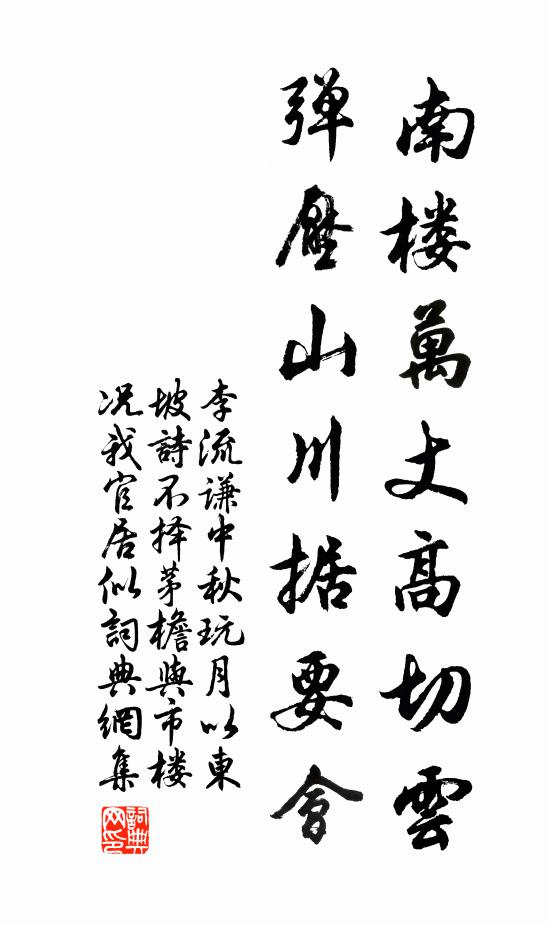 南楼萬丈高切雲
弹壓山川据要會
李流謙中秋玩月以東
坡詩不择茅檐與市楼
况我官居似詞典網集
詞典
网印